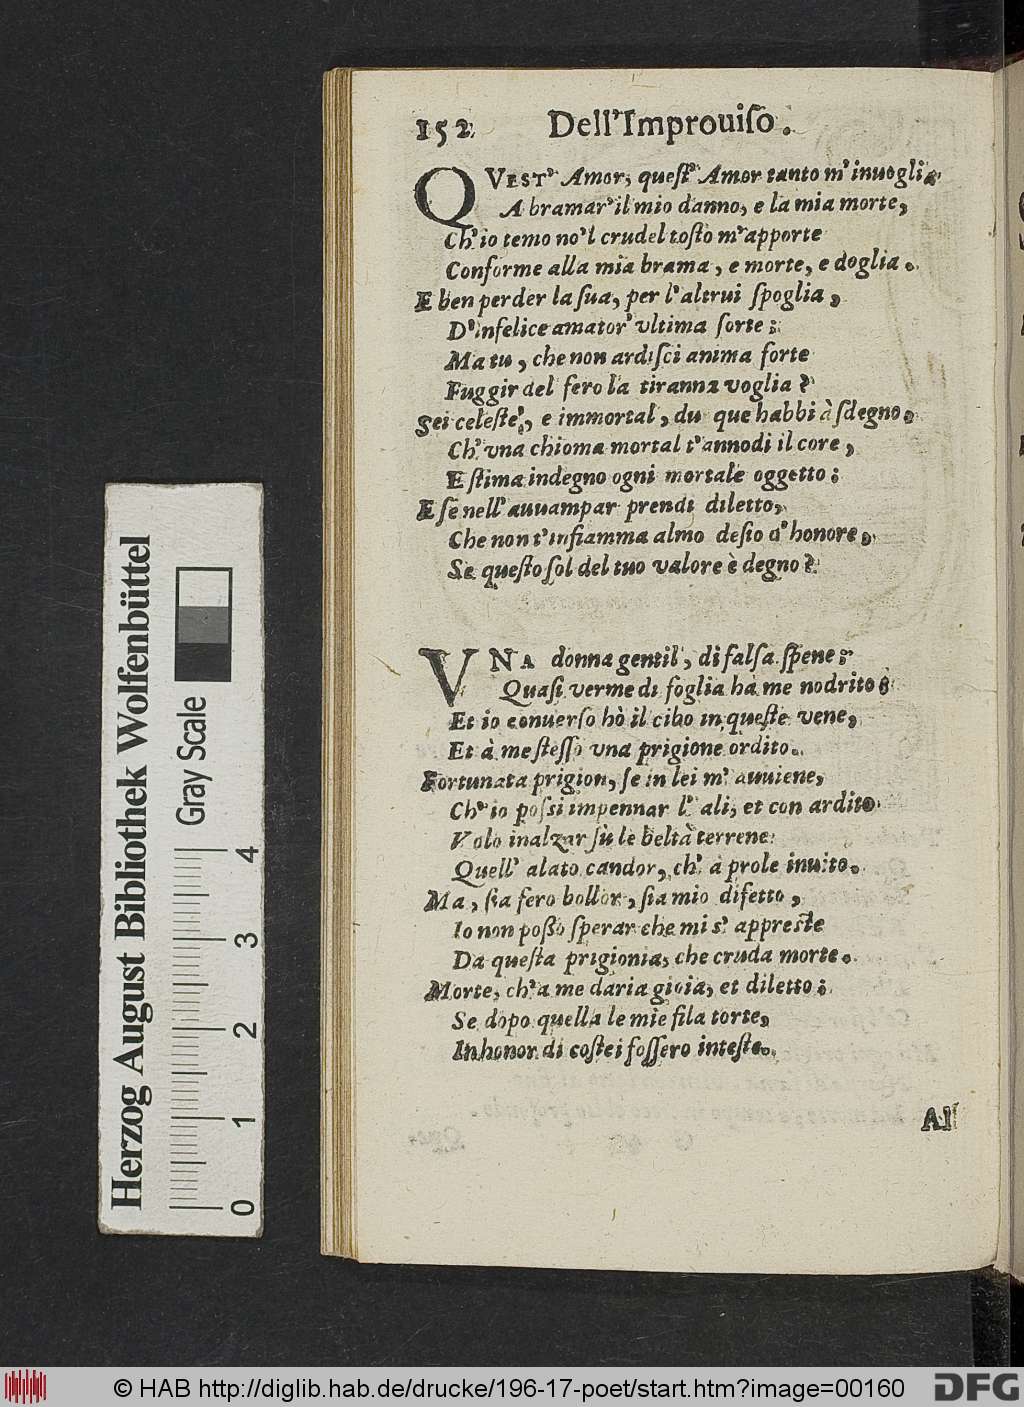 152 Dell'Improuiſo.
QVEST' Amor, queſt' Amor tanto m'inuoglia
A bramar'il mio danno, e la mia morte,
Ch'io temo no'l crudel toſto m'apporte
Conforme alla mia brama, e morte, e doglia.
E ben perder la ſua, per l'altrui ſpoglia,
D'infelice amator' vltima ſorte:
Ma tu, che non ardiſci anima forte
Fuggir del fero la tiranna voglia?
Sei celeſte, e immortal, du que habbi à ſdegno,
Ch'vna chioma mortal t'annodi il core,
E ſtima indegno ogni mortale oggetto:
E ſe nell'auuampar prendi diletto,
Che non t'infiamma almo deſio d'honore,
Se queſto ſol del tuo valore è degno?
VNA donna gentil, di falſa ſpene
Quaſi verme di foglia ha me nodrito:
Et io conuerſo hò il cibo in queſte vene,
Et à me ſteſſo vna prigione ordito.
Fortunata prigion, ſe in lei m'auuiene,
Ch'io poſſi impennar l'ali, et con ardito
Volo inalzar sù le beltà terrene
Quell'alato candor, ch'à prole inuito.
Ma, ſia fero bollor, ſia mio difetto,
Io non poßo ſperar che mi s'appreſte
Da queſta prigionia, che cruda morte.
Morte, ch'a me daria gioia, et diletto;
Se dopo quella le mie fila torte,
In honor di coſtei foſſero inteſte.
Al
Herzog August Bibliothek Wolfenbüttel
Gray Scale
0 1 2 3 4
© HAB http://diglib.hab.de/drucke/196-17-poet/start.htm?image=00160
DFG